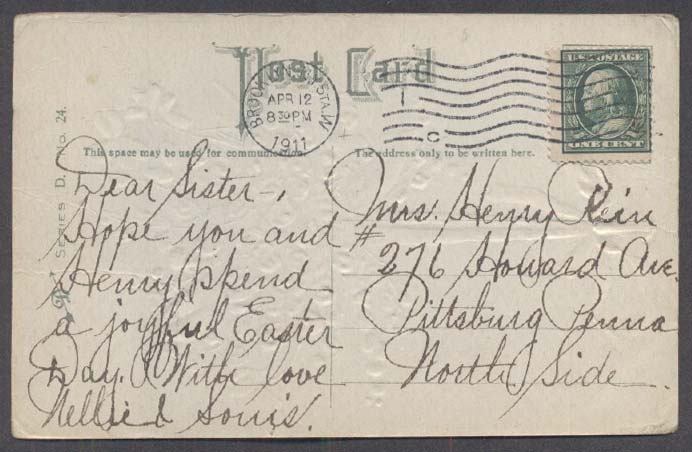 Post Card
BROOKLYN N.Y. STA. W
APR 12
8 30 PM
1911
C
U.S. POSTAGE
ONE CENT
SERIES D. No. 24.
This space may be used for communication.
The address only to be written here.
Dear Sister-,
Hope you and
Henry spend
a joyful Easter
Day. With love
Nellie & Louis.
Mrs. Henry Rein
# 276 Howard Ave.
Pittsburg Penna
North Side.